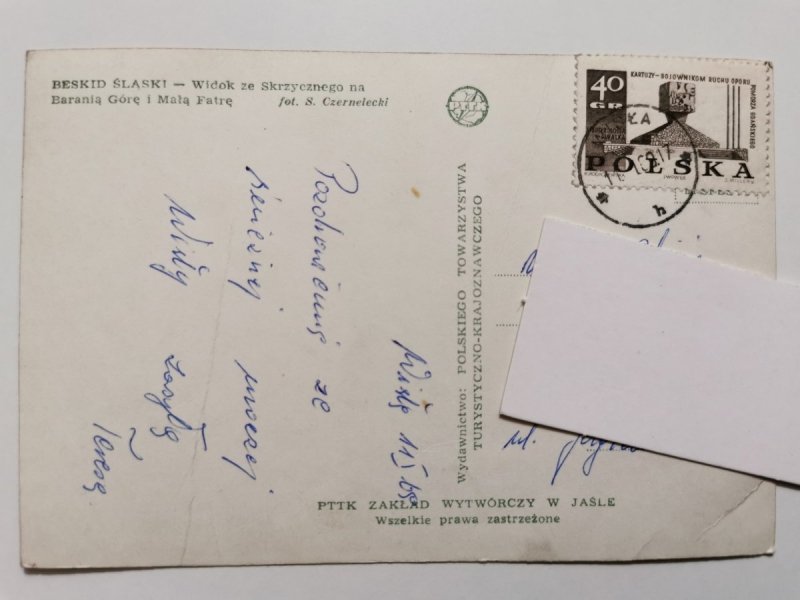 BESKID ŚLĄSKI — Widok ze Skrzycznego na
Baranią Górę i Małą Fatrę fot. S. Czernelecki
PTTK
40
GR
KARTUZY - BOJOWNIKOM RUCHU OPORU
POMORZA GDAŃSKIEGO
POLSKA
ŁA
h
Wydawnictwo: POLSKIEGO TOWARZYSTWA
TURYSTYCZNO-KRAJOZNAWCZEGO
Pozdrowienia ze
śnieżnej
Wisły zasyła
Teresa
ul.
PTTK ZAKŁAD WYTWÓRCZY W JAŚLE
Wszelkie prawa zastrzeżone